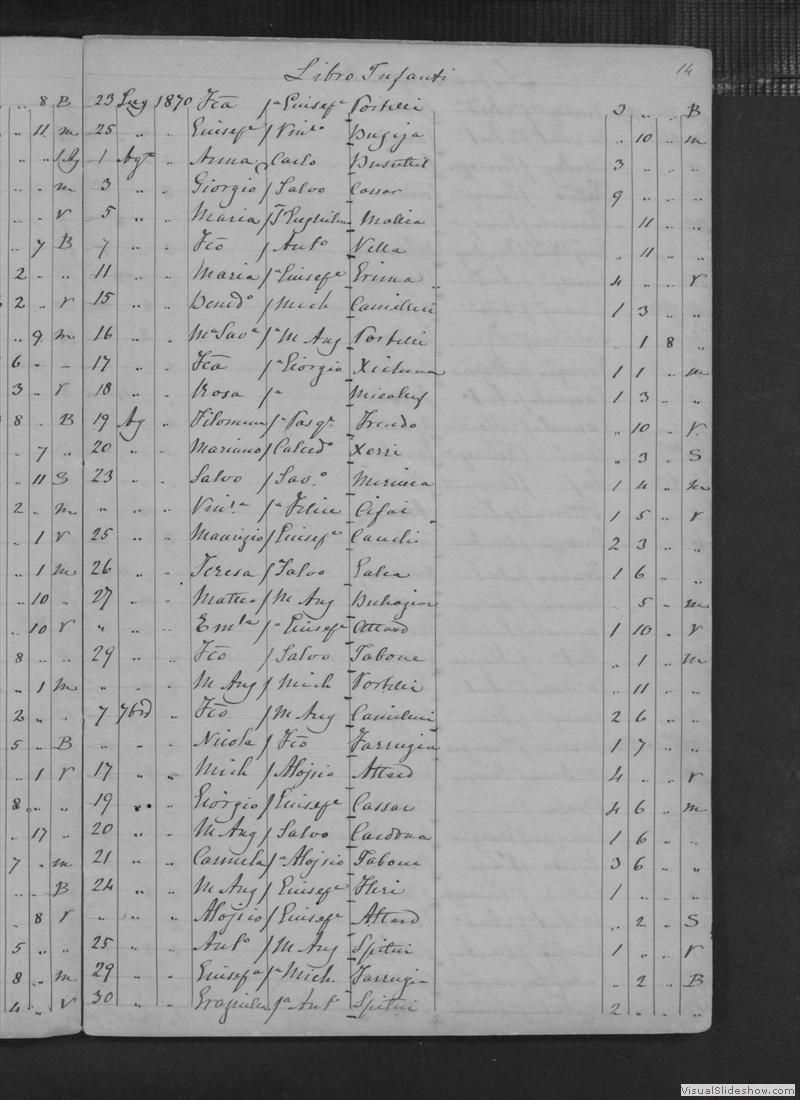 Libro Infanti 14
.. 8 B 23 Lug 1870 Fca fa Giusepe Portelli 3 .. .. B
.. 11 m 25 .. .. Giusepe f Vinzo Bugeja .. 10 .. m
1 Agto .. Anna f Carlo Busuttil 3 .. .. ..
.. .. m 3 .. .. Giorgio f Salvo Cassar 9 .. .. ..
.. .. V 5 .. .. Maria f Mallia .. 11 .. ..
.. 7 B 7 .. .. Fco f Anto Vella .. 11 .. ..
2 .. .. 11 .. .. Maria fa Giusepe Grima 4 .. .. V
2 .. V 15 .. .. f Mich Camilleri 1 3 .. ..
.. 9 m 16 .. .. Ma Sava fa M Ang Portelli .. 1 8 ..
6 .. .. 17 .. .. Fca fa Giorgio Xicluna 1 1 .. m
3 .. V 18 .. .. Rosa fa Micallef 1 3 .. ..
8 .. B 19 Ag .. Filomena fa Pasqe Frendo .. 10 .. V
.. 7 .. 20 .. .. Mariano f Calcedo Xerri .. 3 .. S
.. 11 S 23 .. .. Salvo f Savo 1 4 .. m
2 .. m .. .. .. Vinza fa Felice 1 5 .. V
.. 1 V 25 .. .. Maurizio f Giusepe Camilleri 2 3 .. ..
.. 1 m 26 .. .. Teresa f Salvo Galea 1 6 .. ..
.. 10 .. 27 .. .. Matteo f M Ang Buhagiar .. 5 .. m
.. 10 V .. .. .. Emla fa Giusepe Attard 1 10 .. V
8 .. .. 29 .. .. Fco f Salvo Tabone .. 1 .. m
.. 1 m .. .. .. M Ang f Mich Portelli .. 11 .. ..
2 .. .. 7 7bre .. Fco f M Ang Camilleri 2 6 .. ..
5 .. B .. .. .. Nicola f Fco Farrugia 1 7 .. ..
.. 1 V 17 .. .. Mich f Alojsio Attard 4 .. .. V
8 .. .. 19 .. .. Giorgio f Giusepe Cassar 4 6 .. m
.. 17 .. 20 .. .. M Ang f Salvo Cardona 1 6 .. ..
7 .. m 21 .. .. Carmela fa Alojsio Tabone 3 6 .. ..
.. .. B 24 .. .. M Ang f Giusepe 1 .. .. ..
.. 8 V .. .. .. Alojsio f Giusepe Attard .. 2 .. S
5 .. .. 25 .. .. Anto f M Ang Spiteri 1 .. .. V
8 .. m 29 .. .. Giusepa fa Mich Farrugia .. 2 .. B
4 .. V 30 .. .. Graziella fa Anto Spiteri 2 .. .. ..
VisualSlideshow.com